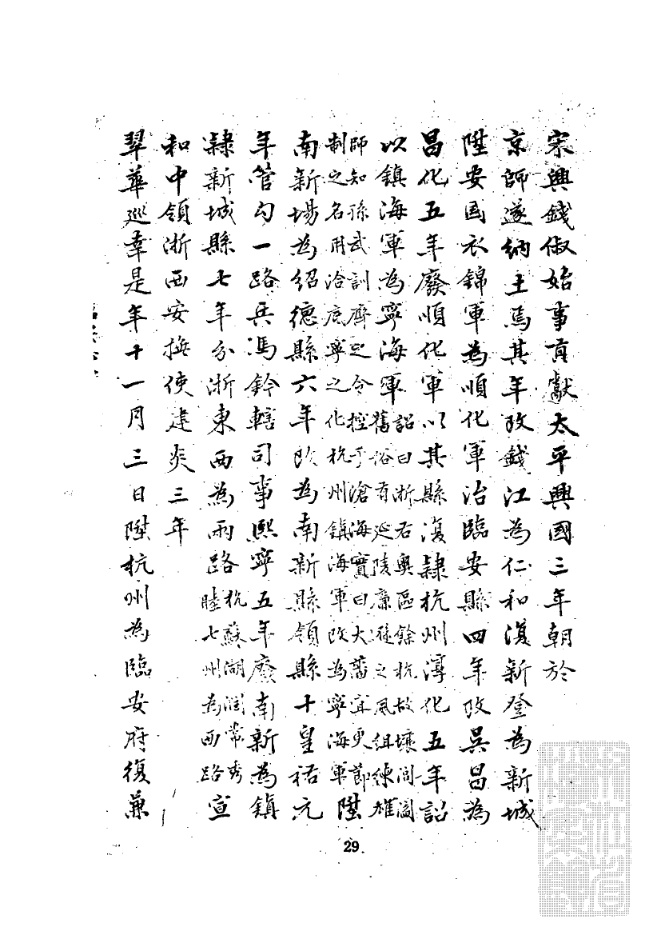 宋興錢俶始事貢獻太平興國三年朝於
京師遂納土焉其年改錢江為仁和復新登為新城
陞安国衣錦軍為順化軍治臨安縣四年改吳昌為
昌化五年廢順化軍以其縣復隷杭州淳化五年詔
以鎮海軍為寧海軍
詔曰浙右奧區餘杭故壤閭閻
舊俗有延陵廉遜之風組練雄
師知孫武訓齊之令控于滄海實曰大藩宜更節
制之名用洽底寧之化杭州鎮海軍改為寧海軍
陞
南新場為紹德縣六年改為南新縣領縣十皇祐元
年管勾一路兵馮鈐轄司事熙寧五年廢南新為鎮
隷新城縣七年分浙東西為兩路
杭蘇湖潤常秀
睦七州為西路
宣
和中領浙西安撫使建炎三年
翠華巡幸是年十一月三日陞杭州為臨安府復兼
29